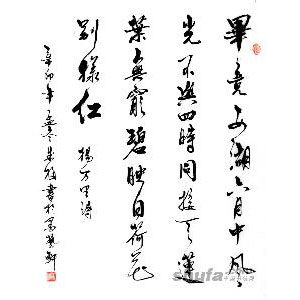 畢竟西湖六月中風
光不與四時同接天蓮
葉無窮碧映日荷花
别樣红 楊万里詩
辛卯年 冬朱 書於 軒
shufa